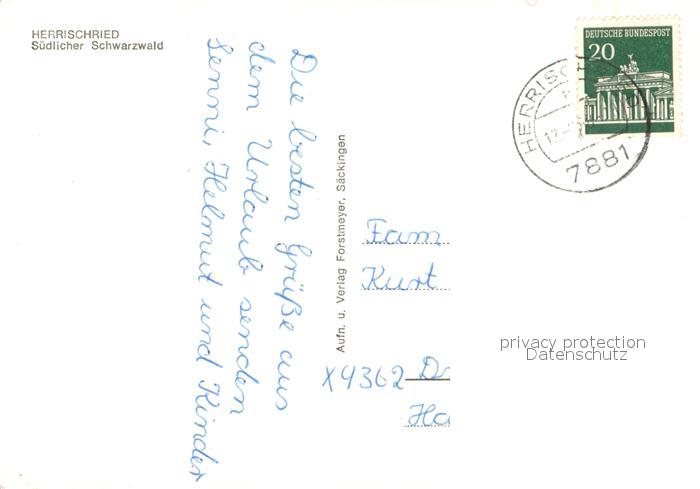 HERRISCHRIED
Südlicher Schwarzwald
Die besten Grüße aus
dem Urlaub senden
Senni, Helmut und Kinder
Aufn. u. Verlag Forstmeyer, Säckingen
DEUTSCHE BUNDESPOST
20
HERRISC
7881
Fam
Kurt
X4362 Dr
Ha
privacy protection
Datenschutz